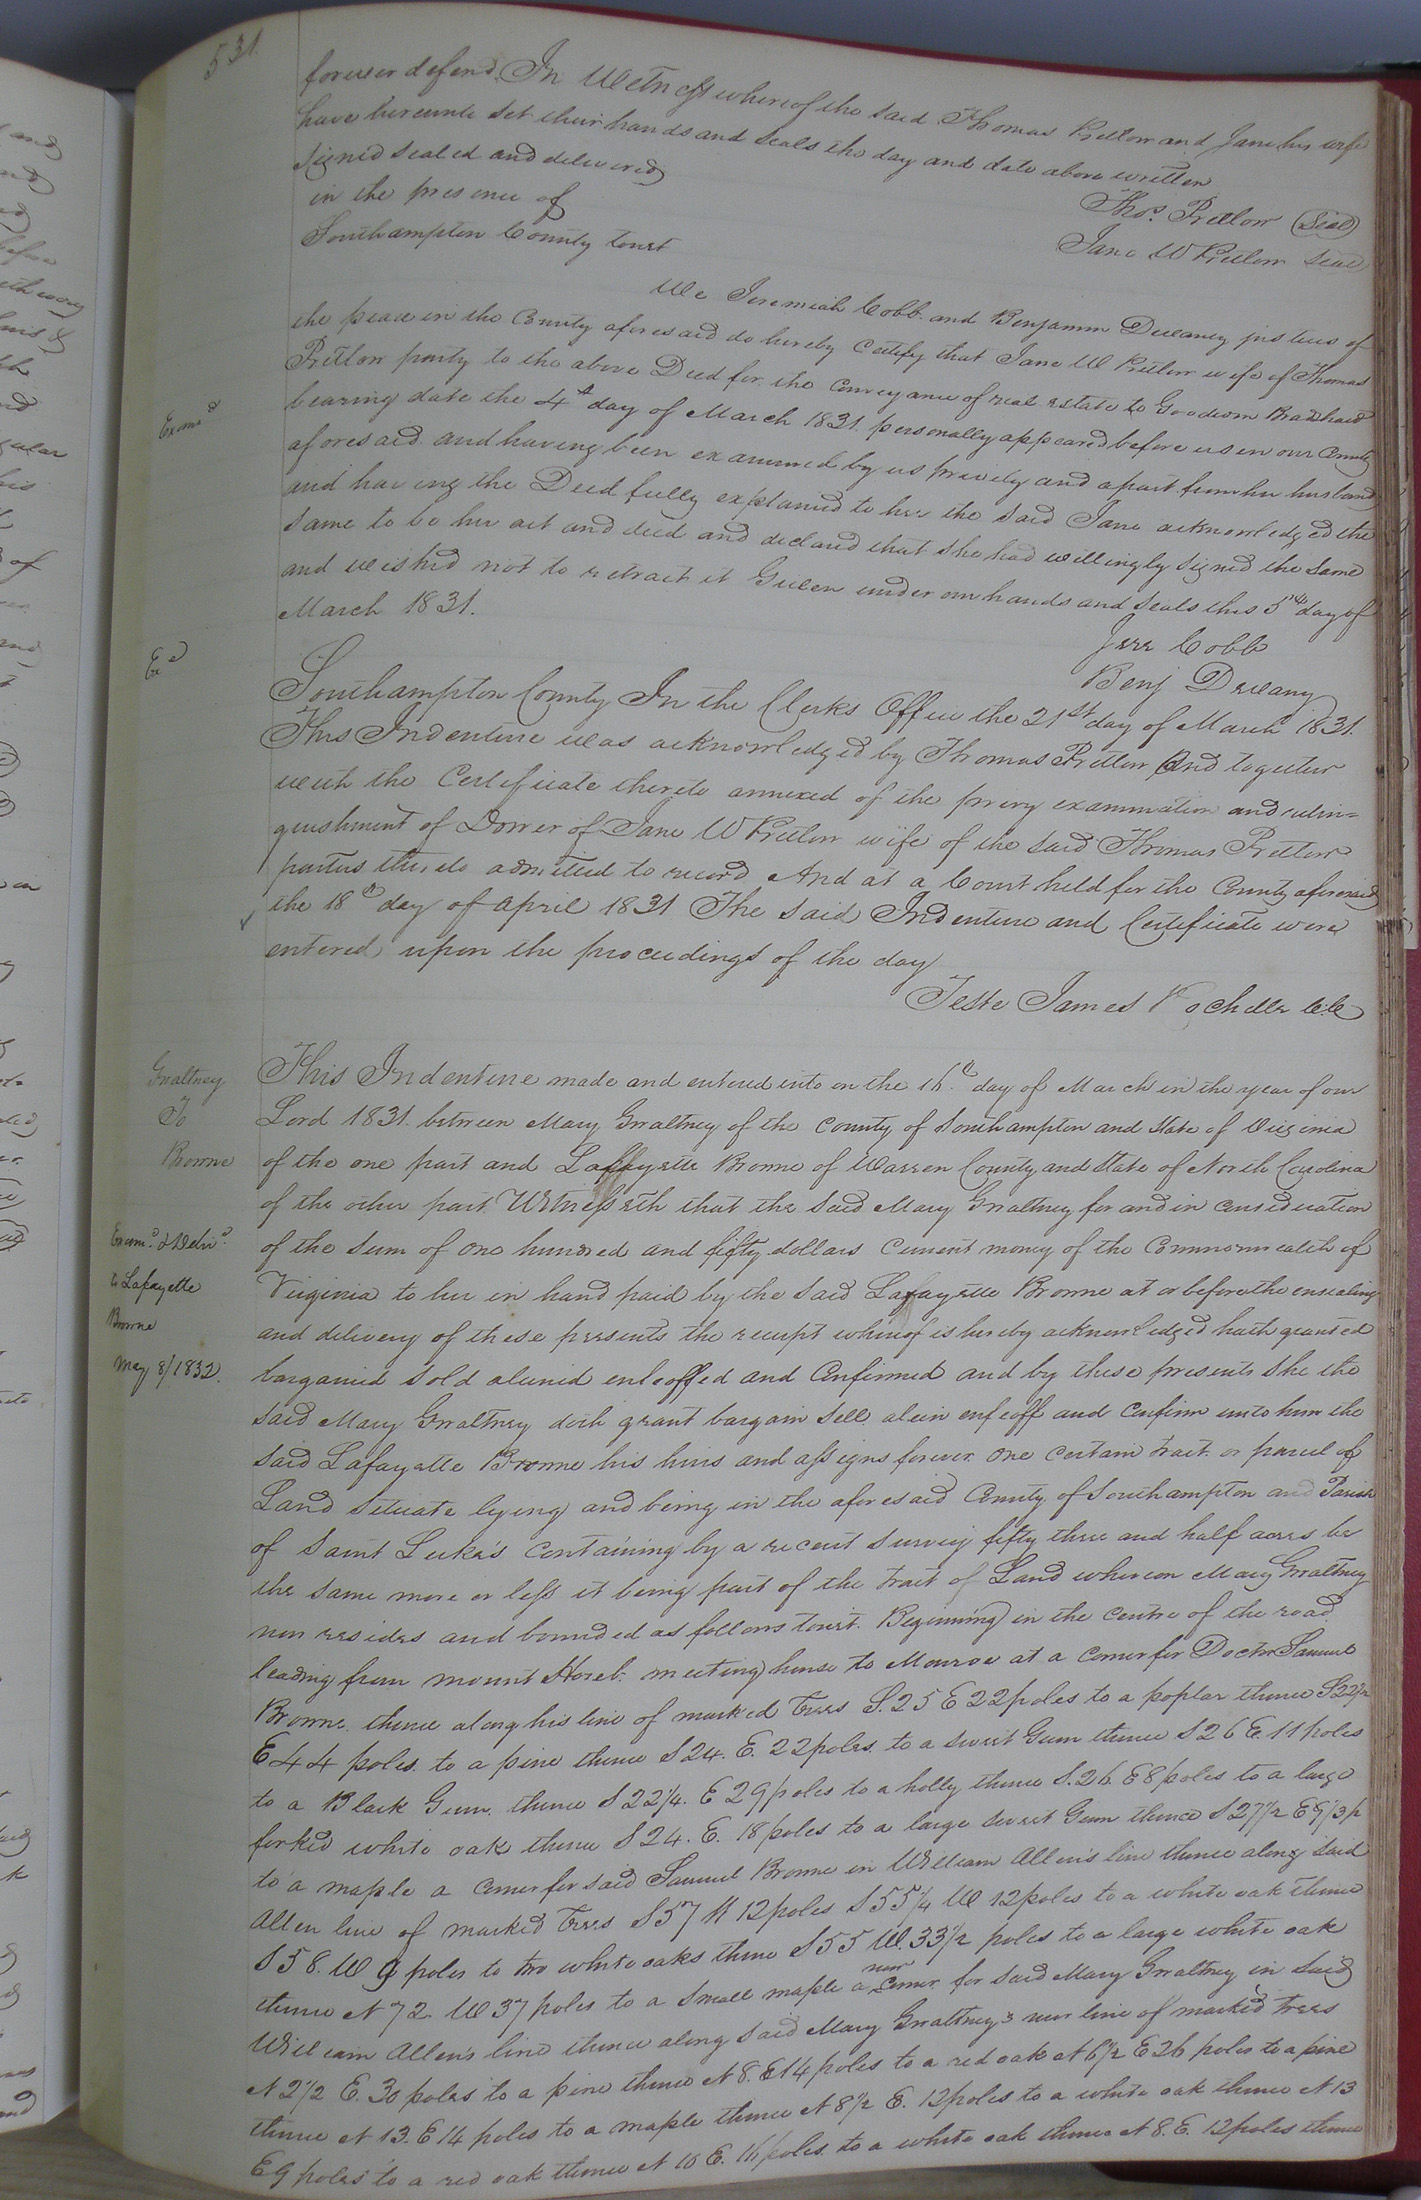 531
forever defend. In Witness whereof the said Thomas Pretlow and Jane his wife
have hereunto set their hands and seals the day and date above written
Signed sealed and delivered
in the presence of
Southampton County Court
Thos. Pretlow (Seal)
Jane W Pretlow Seal
We Jeremiah Cobb and Benjamin Devany justices of
the peace in the County aforesaid do hereby certify that Jane W Pretlow wife of Thomas
Pretlow party to the above Deed for the conveyance of real estate to Goodwon
bearing date the 4th day of March 1831 personally appeared before us in our County
Examd
aforesaid and having been examined by us privily and apart from her husband
and having the Deed fully explained to her she the said Jane acknowledged the
same to be her act and deed and declared that she had willingly signed the same
and wished not to retract it Given under our hands and seals this 5th day of
March 1831.
Jere Cobb
Benj Devany
Exd
Southampton County In the Clerks Office the 21st day of March 1831.
This Indenture was acknowledged by Thomas Pretlow And together
with the Certificate thereto annexed of the privy examination and relin=
quishment of Dower of Jane W Pretlow wife of the said Thomas Pretlow
parties thereto admitted to record And at a Court held for the County aforesaid
the 18th day of April 1831 The said Indenture and Certificate were
entered upon the proceedings of the day
Teste James Rochelle C.C
Gwaltney
To
Browne
Exam.d & Deliv.d
to Lafayette
Browne
May 8/1832.
This Indenture made and entered into on the 16th day of March in the year of our
Lord 1831. between Mary Gwaltney of the County of Southampton and State of Virginia
of the one part and Lafayette Browne of Warren County and State of North Carolina
of the other part Witnesseth that the said Mary Gwaltney for and in consideration
of the sum of one hundred and fifty dollars current money of the Commonwealth of
Virginia to her in hand paid by the said Lafayette Browne at or before the ensealing
and delivery of these presents the receipt whereof is hereby acknowledged hath granted
bargained sold aliened enfeoffed and confirmed and by these presents she the
said Mary Gwaltney doth grant bargain sell alein enfeoff and confirm unto him the
said Lafayette Browne his heirs and assigns forever one certain tract or parcel of
Land situate lying and being in the aforesaid County of Southampton and Parish
of Saint Luke's containing by a recent survey fifty three and half acres be
the same more or less it being part of the tract of Land whereon Mary Gwaltney
now resides and bounded as follows towit. Beginning in the centre of the road
leading from mount Horeb meeting house to Monroe at a corner for Doctor Samuel
Browne thence along his line of marked trees S. 25 E 22 poles to a poplar thence S 22 1/2
E 44 poles to a pine thence S 24. E. 22 poles to a sweet Gum thence S 26 E. 11 poles
to a Black Gum. thence S 22 1/4. E 29 poles to a holly thence S. 26. E 8 poles to a large
forked white oak thence S 24. E. 18 poles to a large sweet Gum thence S 27 1/2 E 9 1/3 p
to a maple a corner for said Samuel Browne in William Allen's line thence along said
Allen line of marked trees S 57 W 12 poles S 55 1/4 W 12 poles to a white oak thence
S 58. W 9 poles to two white oaks thence S 55 W. 33 1/2 poles to a large white oak
thence N 72. W 37 poles to a small maple a new corner for said Mary Gwaltney in said
William Allen's line thence along said Mary Gwaltney's new line of marked trees
N 2 1/2 E. 30 poles to a pine thence N 8. E 14 poles to a red oak N 6 1/2 E 26 poles to a pine
thence N 13. E 14 poles to a maple thence N 8 1/2 E. 12 poles to a white oak thence N 13
E 9 poles to a red oak thence N 10 E. 16 poles. to a white oak thence N 8. E. 12 poles thence